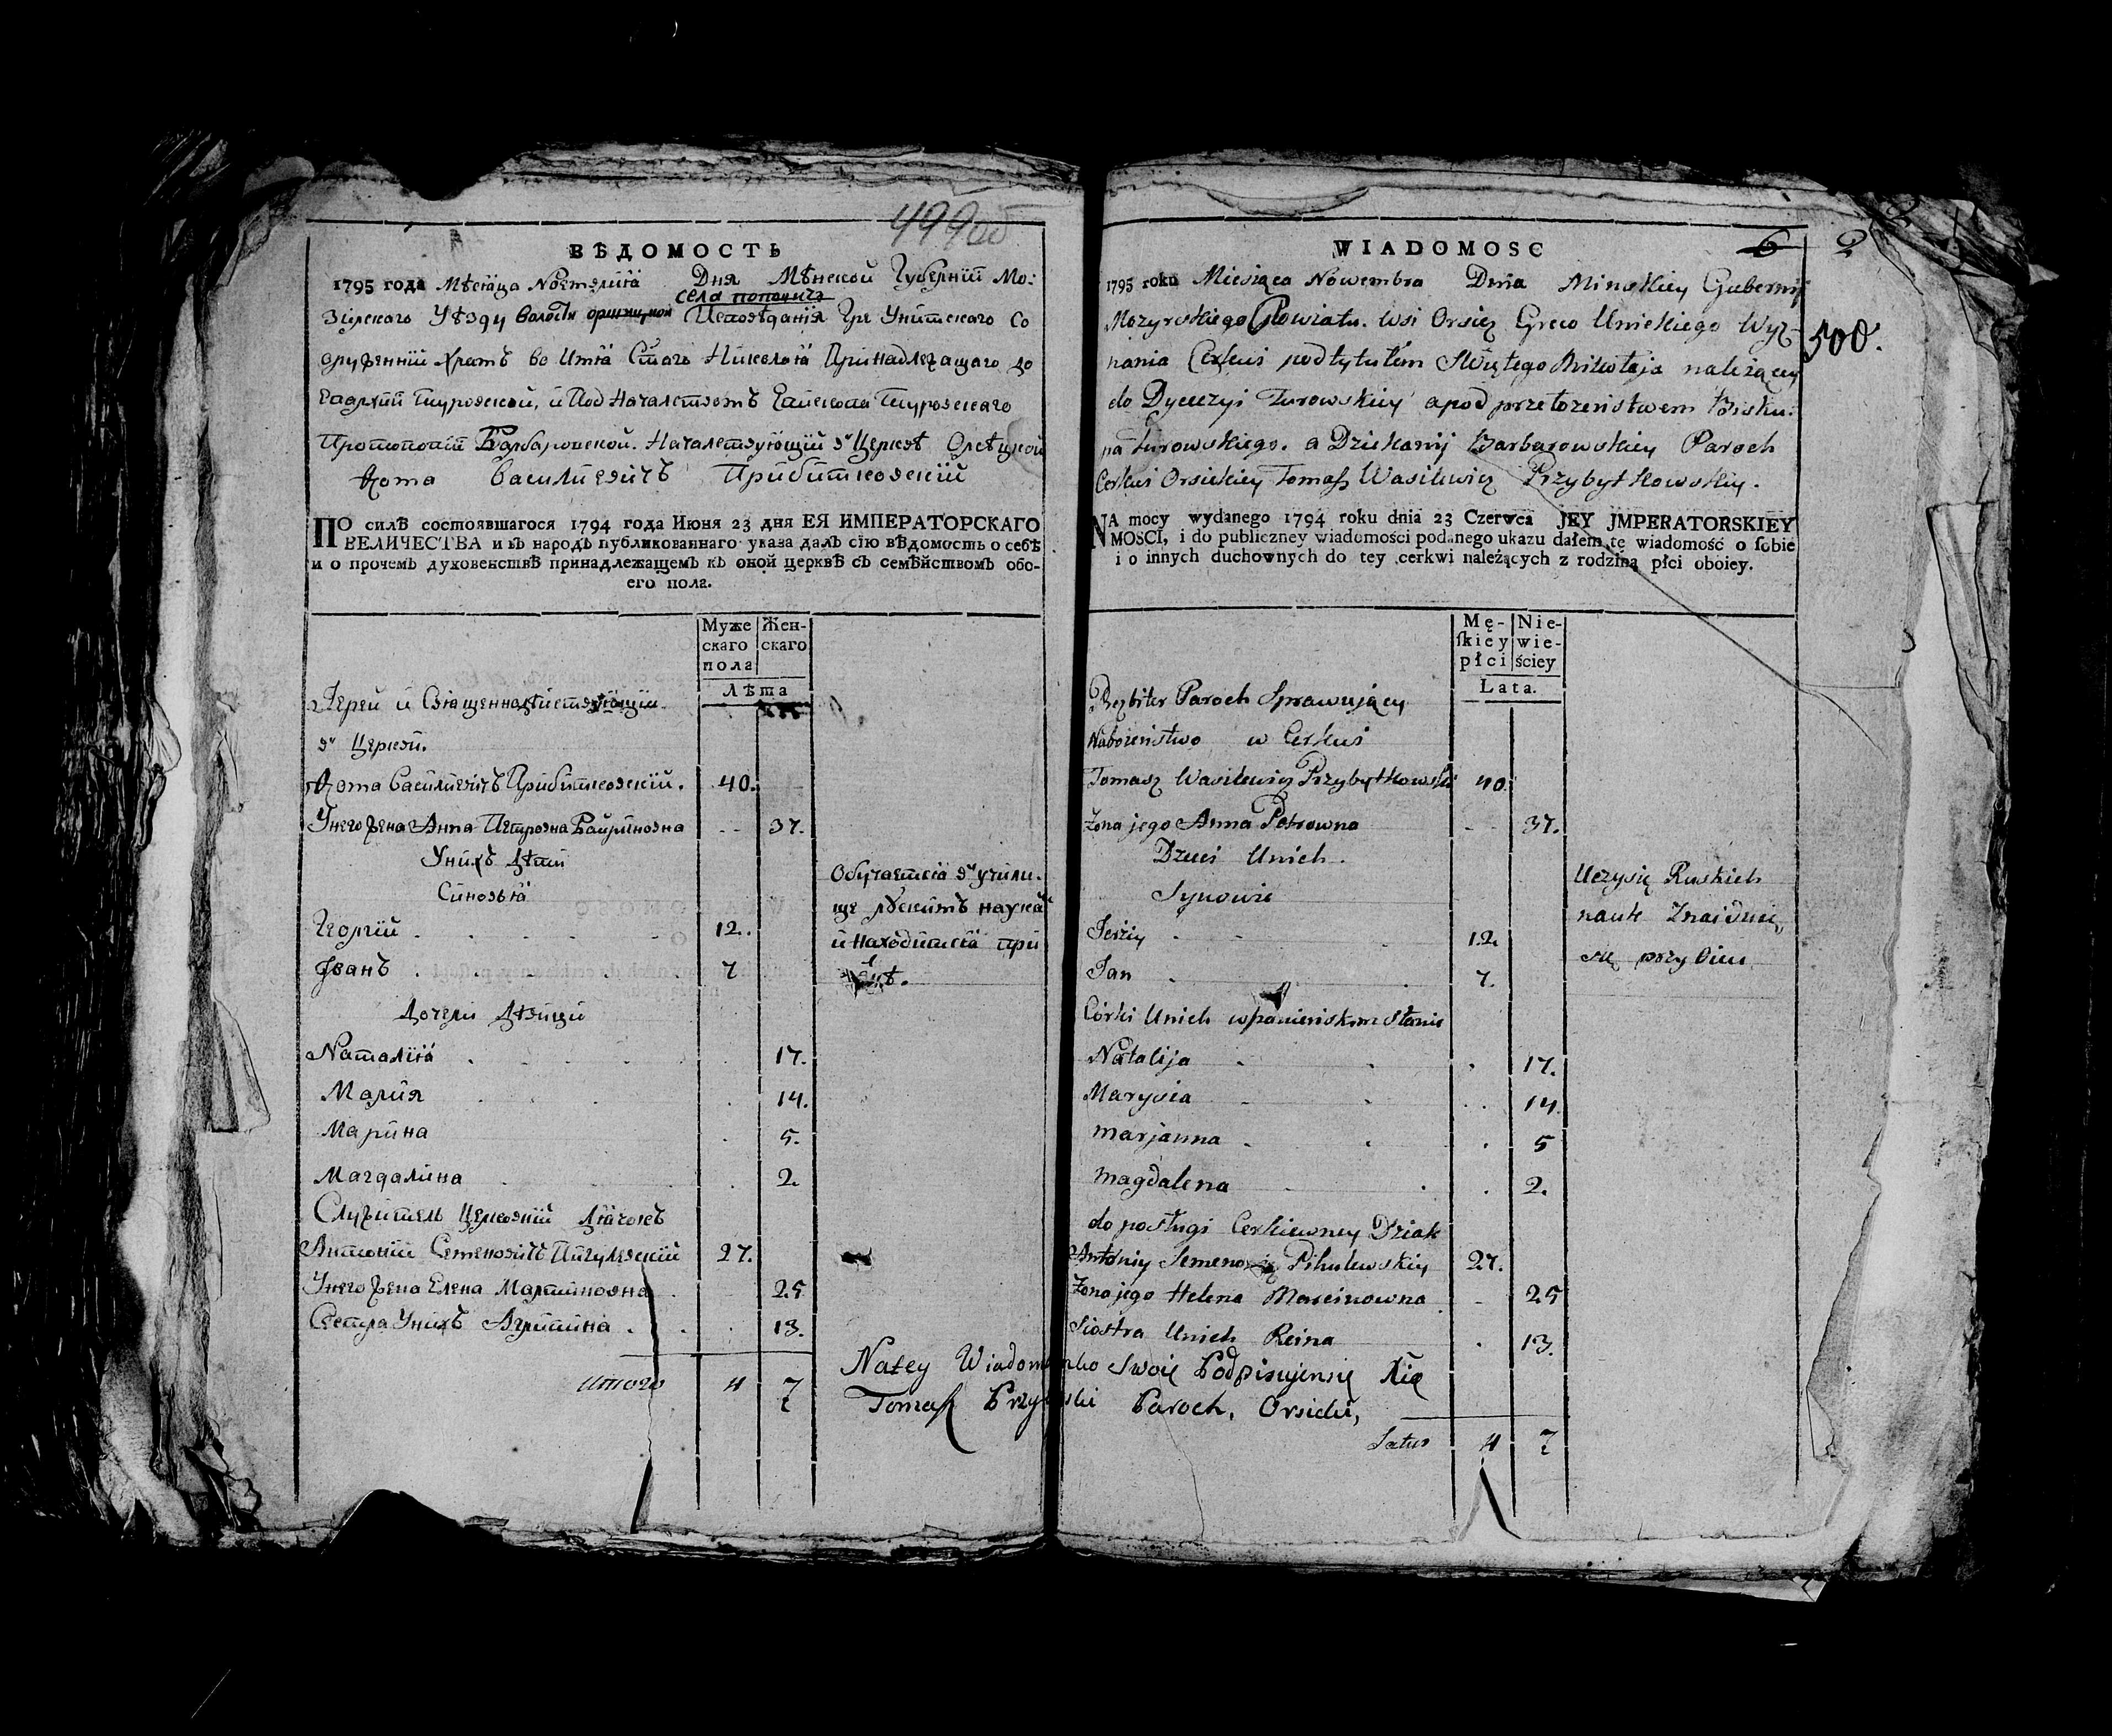 499об
ВѢДОМОСТЬ
1795 года Мѣсяца Ноемврія Дня Мѣнской Губерніи Мо:
села
зирскаго Уѣзду волости Исповѣданія Гре Унитского Со
оруженній Храмъ во имя Стаго Николая Принадлежащаго до
Епархіи Туровской, и Под Началством Епископа Туровскаго
Протопопіи Барбаровской. Началствующій в Церквѣ
Фома Василиевичъ Прибитковскій
ПО силѣ состоявшагося 1794 года Июня 23 дня ЕЯ ИМПЕРАТОРСКАГО
ВЕЛИЧЕСТВА и въ народъ публикованнаго указа далъ сію вѣдомость о себѣ
и о прочемъ духовенствѣ принадлежащемъ къ оной церквѣ съ семѣйствомъ обо-
его пола.
Муже Жен-
скаго скаго
пола
Лѣта
Іерей и Священнодѣйствующій
в Церкви.
Фома Василиевичъ Прибитковскій. 40.
У него жена Анна Петровна 37.
У нихъ дѣти
Синовья
Георгій 12.
Иванъ 7
Обучается в учили-
ще рускимъ наукам
и находится при
Дочери дѣвици
Наталія 17.
Мария 14.
Марина 5.
Магдалина 2.
Служитель Церковній Дячокъ
Антоній Семеновичъ Пигулевскій 27.
У него жена Елена Мартиновна 25
Сестра У нихъ 13.
Итого 4 7
WIADOMOSC
6 2
1795 roku Miesiąca Nowembra Dnia Minskiey Gubernij
500.
Mozyrskiego Powiatu. Wsi Orsicz Greco Unickiego Wyz-
nania Cerkwi pod tytułem Swiętego Mikołaja należącey
do Dyecezyi Turowskiey a pod przełożeństwem Bisku:
pa Turowskiego. a Dziekanij Barbarowskiey Paroch
Cerkwi Orsickiey Tomasz Wasilewicz Przybytkowskiy.
NA mocy wydanego 1794 roku dnia 23 Czerwca JEY JMPERATORSKIEY
MOSCI, i do publiczney wiadomości podanego ukazu dałem tę wiadomość o sobie
i o innych duchownych do tey cerkwi należących z rodziną płci oboiey.
Mę- Nie-
skiey wie-
płci ściey
Lata.
Prezbiter Paroch Sprawujący
Nabożeństwo w Cerkwi
Tomasz Wasilewicz Przybytkowski 40.
Żona jego Anna Petrowna 37.
Dzieci Unich.
Synowie
Jerzy 12.
Jan 7.
Uczysię Ruskich
nauk
się przy Oicu
Córki Unich w panieńskim Stanie
Natalija 17.
Marysia 14.
marjanna 5
magdalena 2.
do posługi Cerkiewney Dziak
Antoniy Semenowicz Pihulewskiy 27.
Żona jego Helena Marcinowna 25
Siostra Unich Reina 13.
Na tey Swoię Podpisujensię
Tomasz Paroch, Orsicki,
Latus 4 7